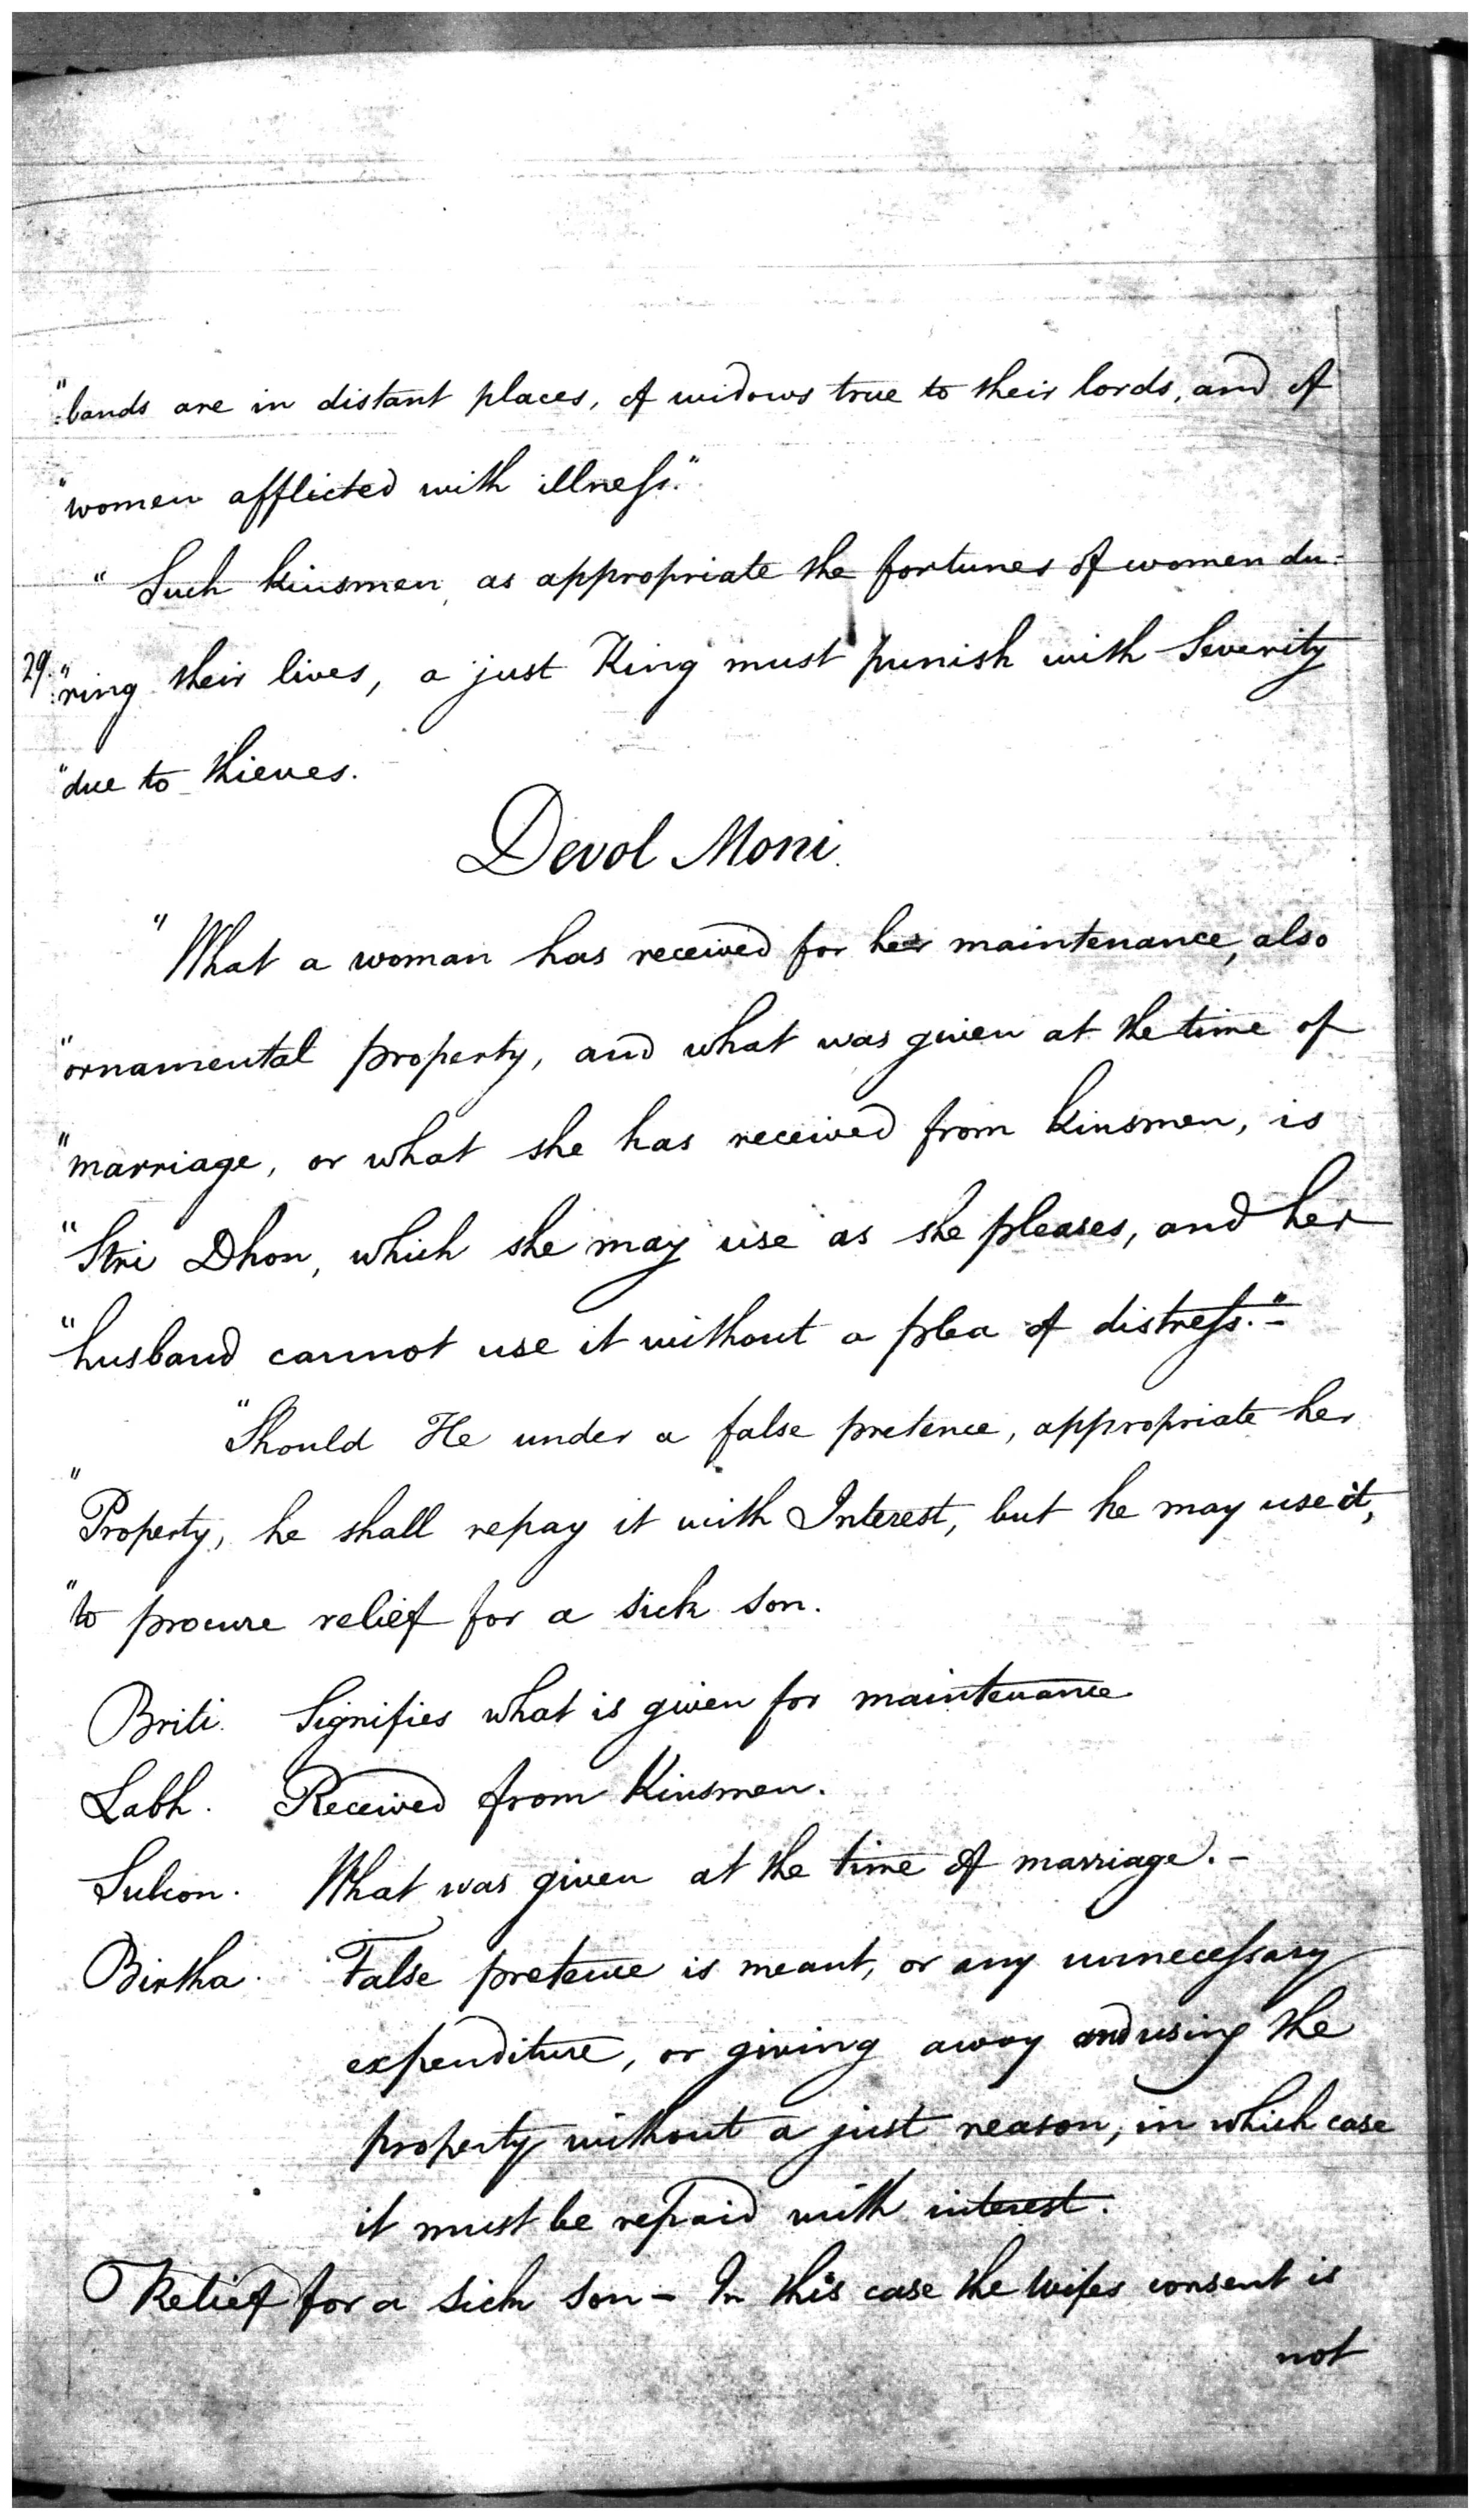 ":bands are in distant places, of widows true to their lords, and of
"women afflicted with illness."
"Such kinsmen, as appropriate the fortunes of women du:
29. ":ring their lives, a just King must punish with Severity
"due to thieves.
Devol Moni.
"What a woman has received for her maintenance, also
"ornamental property, and what was given at the time of
"marriage, or what she has received from kinsmen, is
"Stri Dhon, which she may use as she pleases, and her
"husband cannot use it without a plea of distress."-
"Should He under a false pretence, appropriate her
"Property, he shall repay it with Interest, but he may use it,
"to procure relief for a sick son.
Briti. Signifies what is given for maintenance
Labh. Received from Kinsmen.
Sulcon. What was given at the time of marriage.-
Birtha. False pretence is meant, or any unnecessary
expenditure, or giving away and using the
property without a just reason, in which case
it must be repaid with interest.
Relief for a sick son - In this case the wifes consent is
not